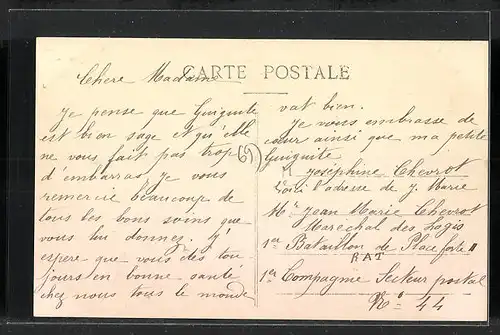 CARTE POSTALE
Chere Madame
Je pense que Guiguite
est bien sage et qu'elle
ne vous fait pas trop
d'embarras je vous
remercie beaucoup de
tous les bons soins que
vous lui donnez j'
espere que vous êtes tou
jours en bonne santé
chez nous tous le monde
69
vat bien.
Je vous embrasse de
cœur ainsi que ma petite
Guiguite
Josephine Chevrot
Voici l'adresse de J. Marie
Mr Jean Marie Chevrot
Marechal des Logis
1er Bataillon de Place forte
RAT
1er Compagnie Secteur postal
No 44